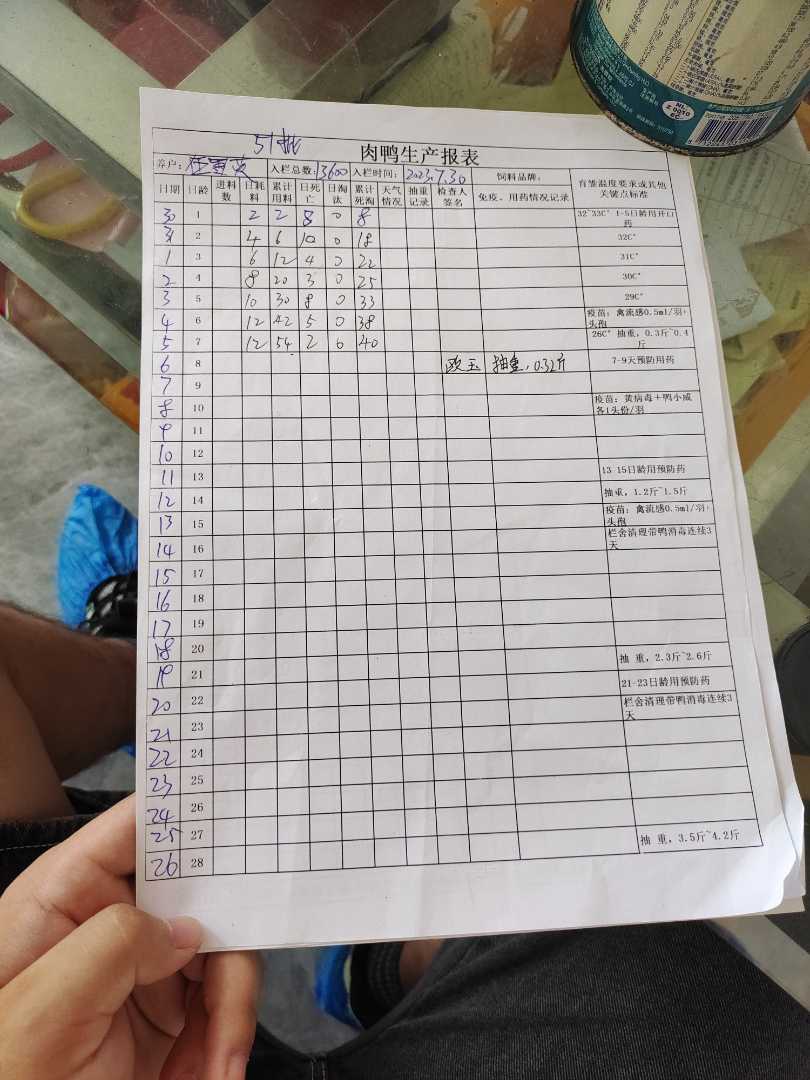 51批
肉鸭生产报表
养户: 入栏总数: 13600 入栏时间: 2023.7.30 饲料品牌:
日期 日龄 进料数 日耗料 累计用料 日死亡 日淘汰 累计死淘 天气情况 抽重记录 检查人签名 免疫、用药情况记录 育雏温度要求或其他关键点标准
30 1 2 2 8 0 8 32~33C° 1-5日龄用开口药
31 2 4 6 10 0 18 32C°
1 3 6 12 4 0 22 31C°
2 4 8 20 3 0 25 30C°
3 5 10 30 8 0 33 29C°
4 6 12 42 5 0 38 疫苗: 禽流感0.5ml/羽+头孢
5 7 12 54 2 0 40 26C° 抽重, 0.3斤~0.4斤
6 8 欧玉 抽重, 0.32斤 7-9天预防用药
7 9
8 10 疫苗: 黄病毒+鸭小咸各1头份/羽
9 11
10 12
11 13 13 15日龄用预防药
12 14 抽重, 1.2斤~1.5斤
13 15 疫苗: 禽流感0.5ml/羽+头孢
14 16 栏舍清理带鸭消毒连续3天
15 17
16 18
17 19
18 20
19 21 抽 重, 2.3斤~2.6斤
20 22 21-23日龄用预防药
21 23 栏舍清理带鸭消毒连续3天
22 24
23 25
24 26
25 27
26 28 抽 重, 3.5斤~4.2斤
NL
Z 0010
EC